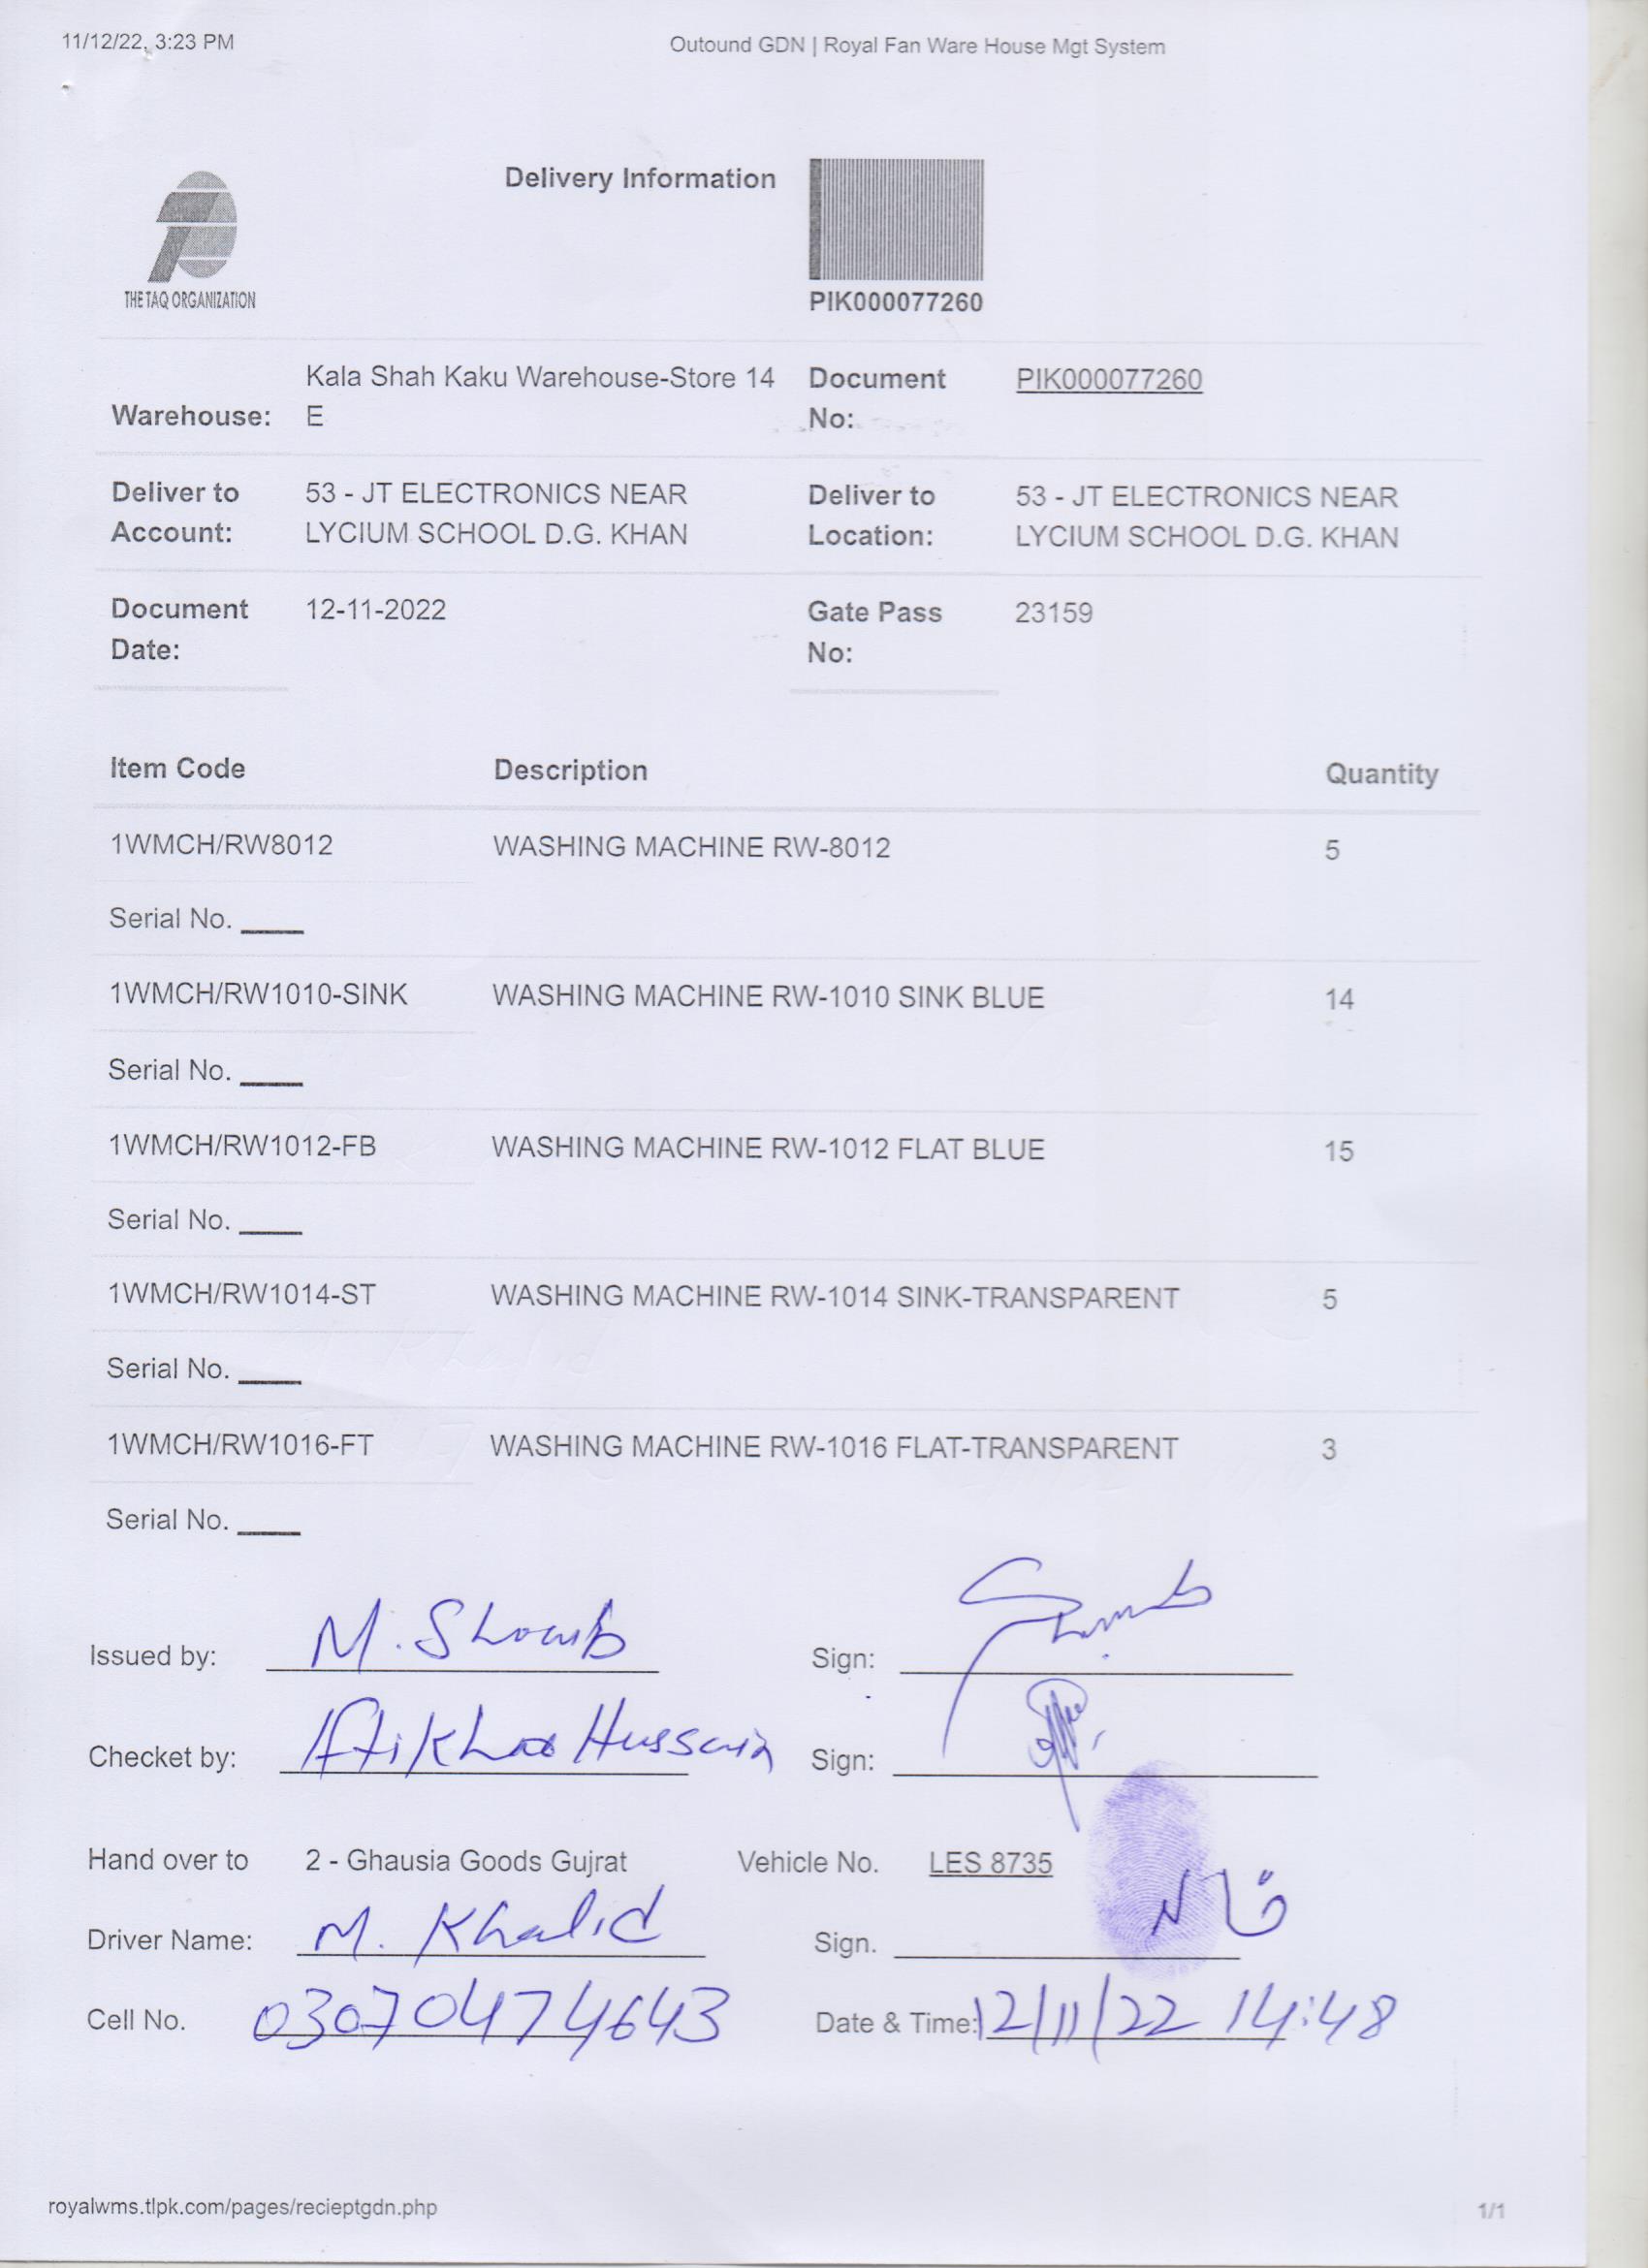 11/12/22, 3:23 PM Outound GDN | Royal Fan Ware House Mgt System
Delivery Information
THE TAQ ORGANIZATION
PIK000077260
Warehouse: Kala Shah Kaku Warehouse-Store 14 E Document No: PIK000077260
Deliver to Account: 53 - JT ELECTRONICS NEAR LYCIUM SCHOOL D.G. KHAN Deliver to Location: 53 - JT ELECTRONICS NEAR LYCIUM SCHOOL D.G. KHAN
Document Date: 12-11-2022 Gate Pass No: 23159
Item Code Description Quantity
1WMCH/RW8012 WASHING MACHINE RW-8012 5
Serial No. ____
1WMCH/RW1010-SINK WASHING MACHINE RW-1010 SINK BLUE 14
Serial No. ____
1WMCH/RW1012-FB WASHING MACHINE RW-1012 FLAT BLUE 15
Serial No. ____
1WMCH/RW1014-ST WASHING MACHINE RW-1014 SINK-TRANSPARENT 5
Serial No. ____
1WMCH/RW1016-FT WASHING MACHINE RW-1016 FLAT-TRANSPARENT 3
Serial No. ____
Issued by: M. Shoaib Sign:
Checket by: Iftikhar Hussain Sign:
Hand over to 2 - Ghausia Goods Gujrat Vehicle No. LES 8735
Driver Name: M. Khalid Sign.
Cell No. 03070474643 Date & Time: 12/11/22 14:48
royalwms.tlpk.com/pages/recieptgdn.php 1/1